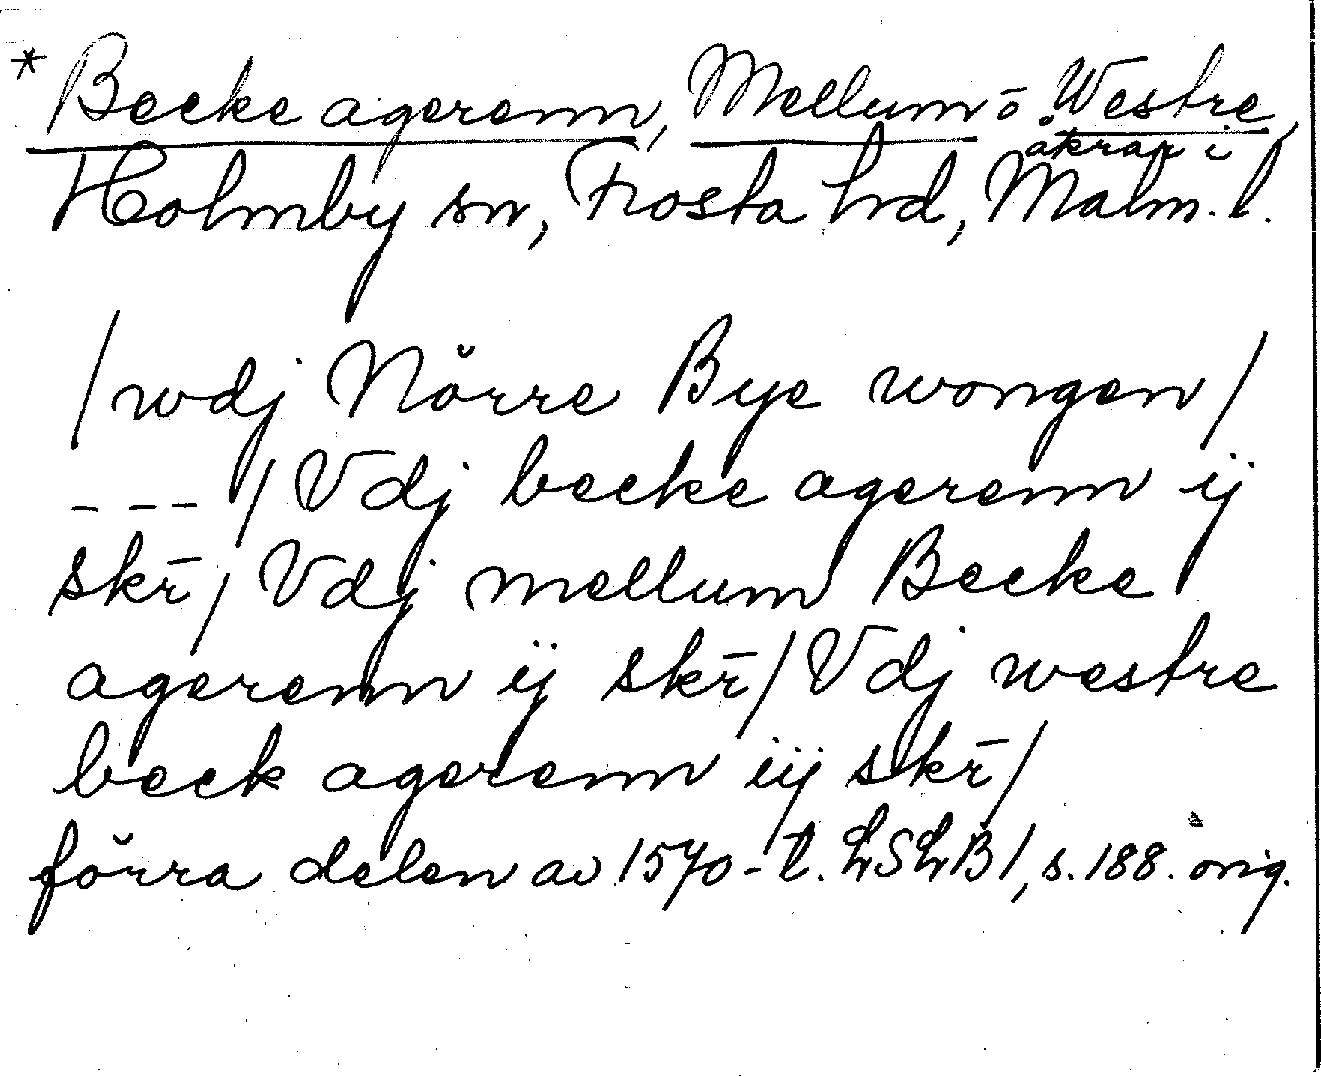 * Becke agerenn, Mellum o Westre,
åkrar i
Holmby sn, Frosta hd, Malm. l.
/ wdj Nörre Bye wongen /
--- / Vdj becke agerenn ij
skr̄ / Vdj mellum Becke
agerenn ij skr̄ / Vdj westre
beck agerenn iij skr̄ /
förra delen av 1570-t. LSLB 1, s. 188. orig.